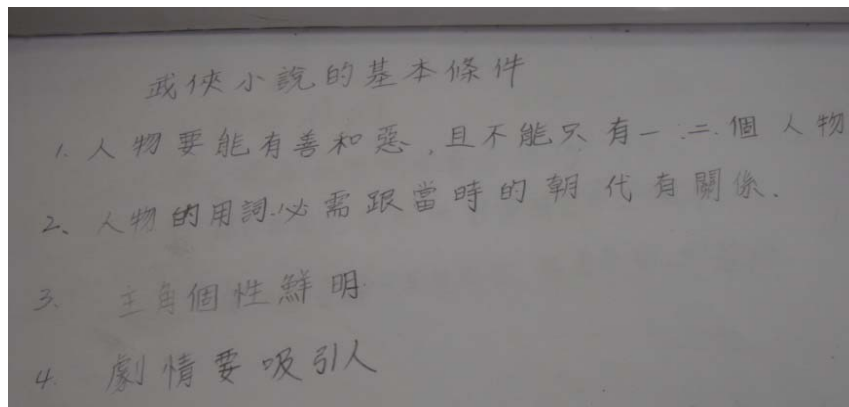 武俠小說的基本條件
1. 人物要能有善和惡,且不能只有一、二個人物
2、人物的用詞必需跟當時的朝代有關係.
3. 主角個性鮮明
4. 劇情要吸引人